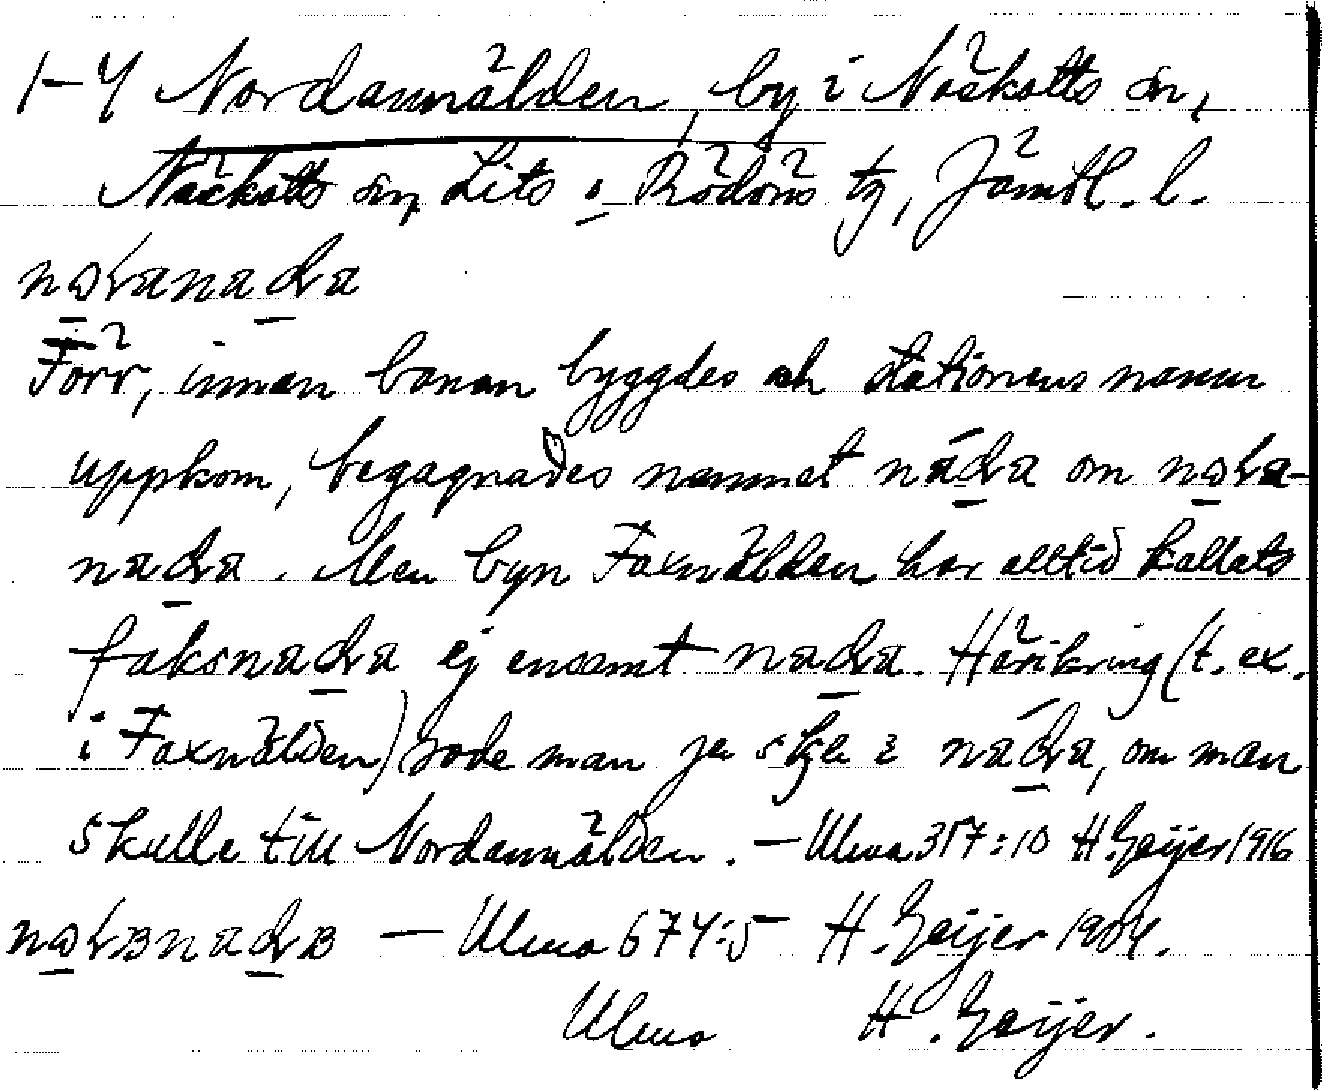 1-4 Nordannälden, by i Näskotts sn,
Näskotts sn, Lits o Rödöns tg, Jämtl. l.
Förr, innan banan byggdes och stationens namn
uppkom, begagnades namnet náda om
nada. Men byn Faxnälden har alltid kallats
faksnada ej ensamt nada. Häromkring (t. ex.
i Faxnälden) sade man i náda, om man
skulle till Nordannälden. — Ulma 357:10 H. Geijer 1916
— Ulma 674:5 H. Geijer 1904.
Ulma H. Geijer.